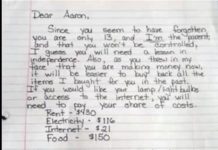 Dear Aaron,
Since you seem to have forgotten
you are only 13, and I'm the parent
and that you won't be controlled,
I guess you will need a lesson in
independence. Also, as you threw in my
face that you are making money now,
it will be easier to buy back all the
items I bought for you in the past.
If you would like your lamp/lightbulbs
or access to the internet, you will
need to pay your share of costs.
Rent - $430
Electricity - $116
Internet - $21
Food - $150